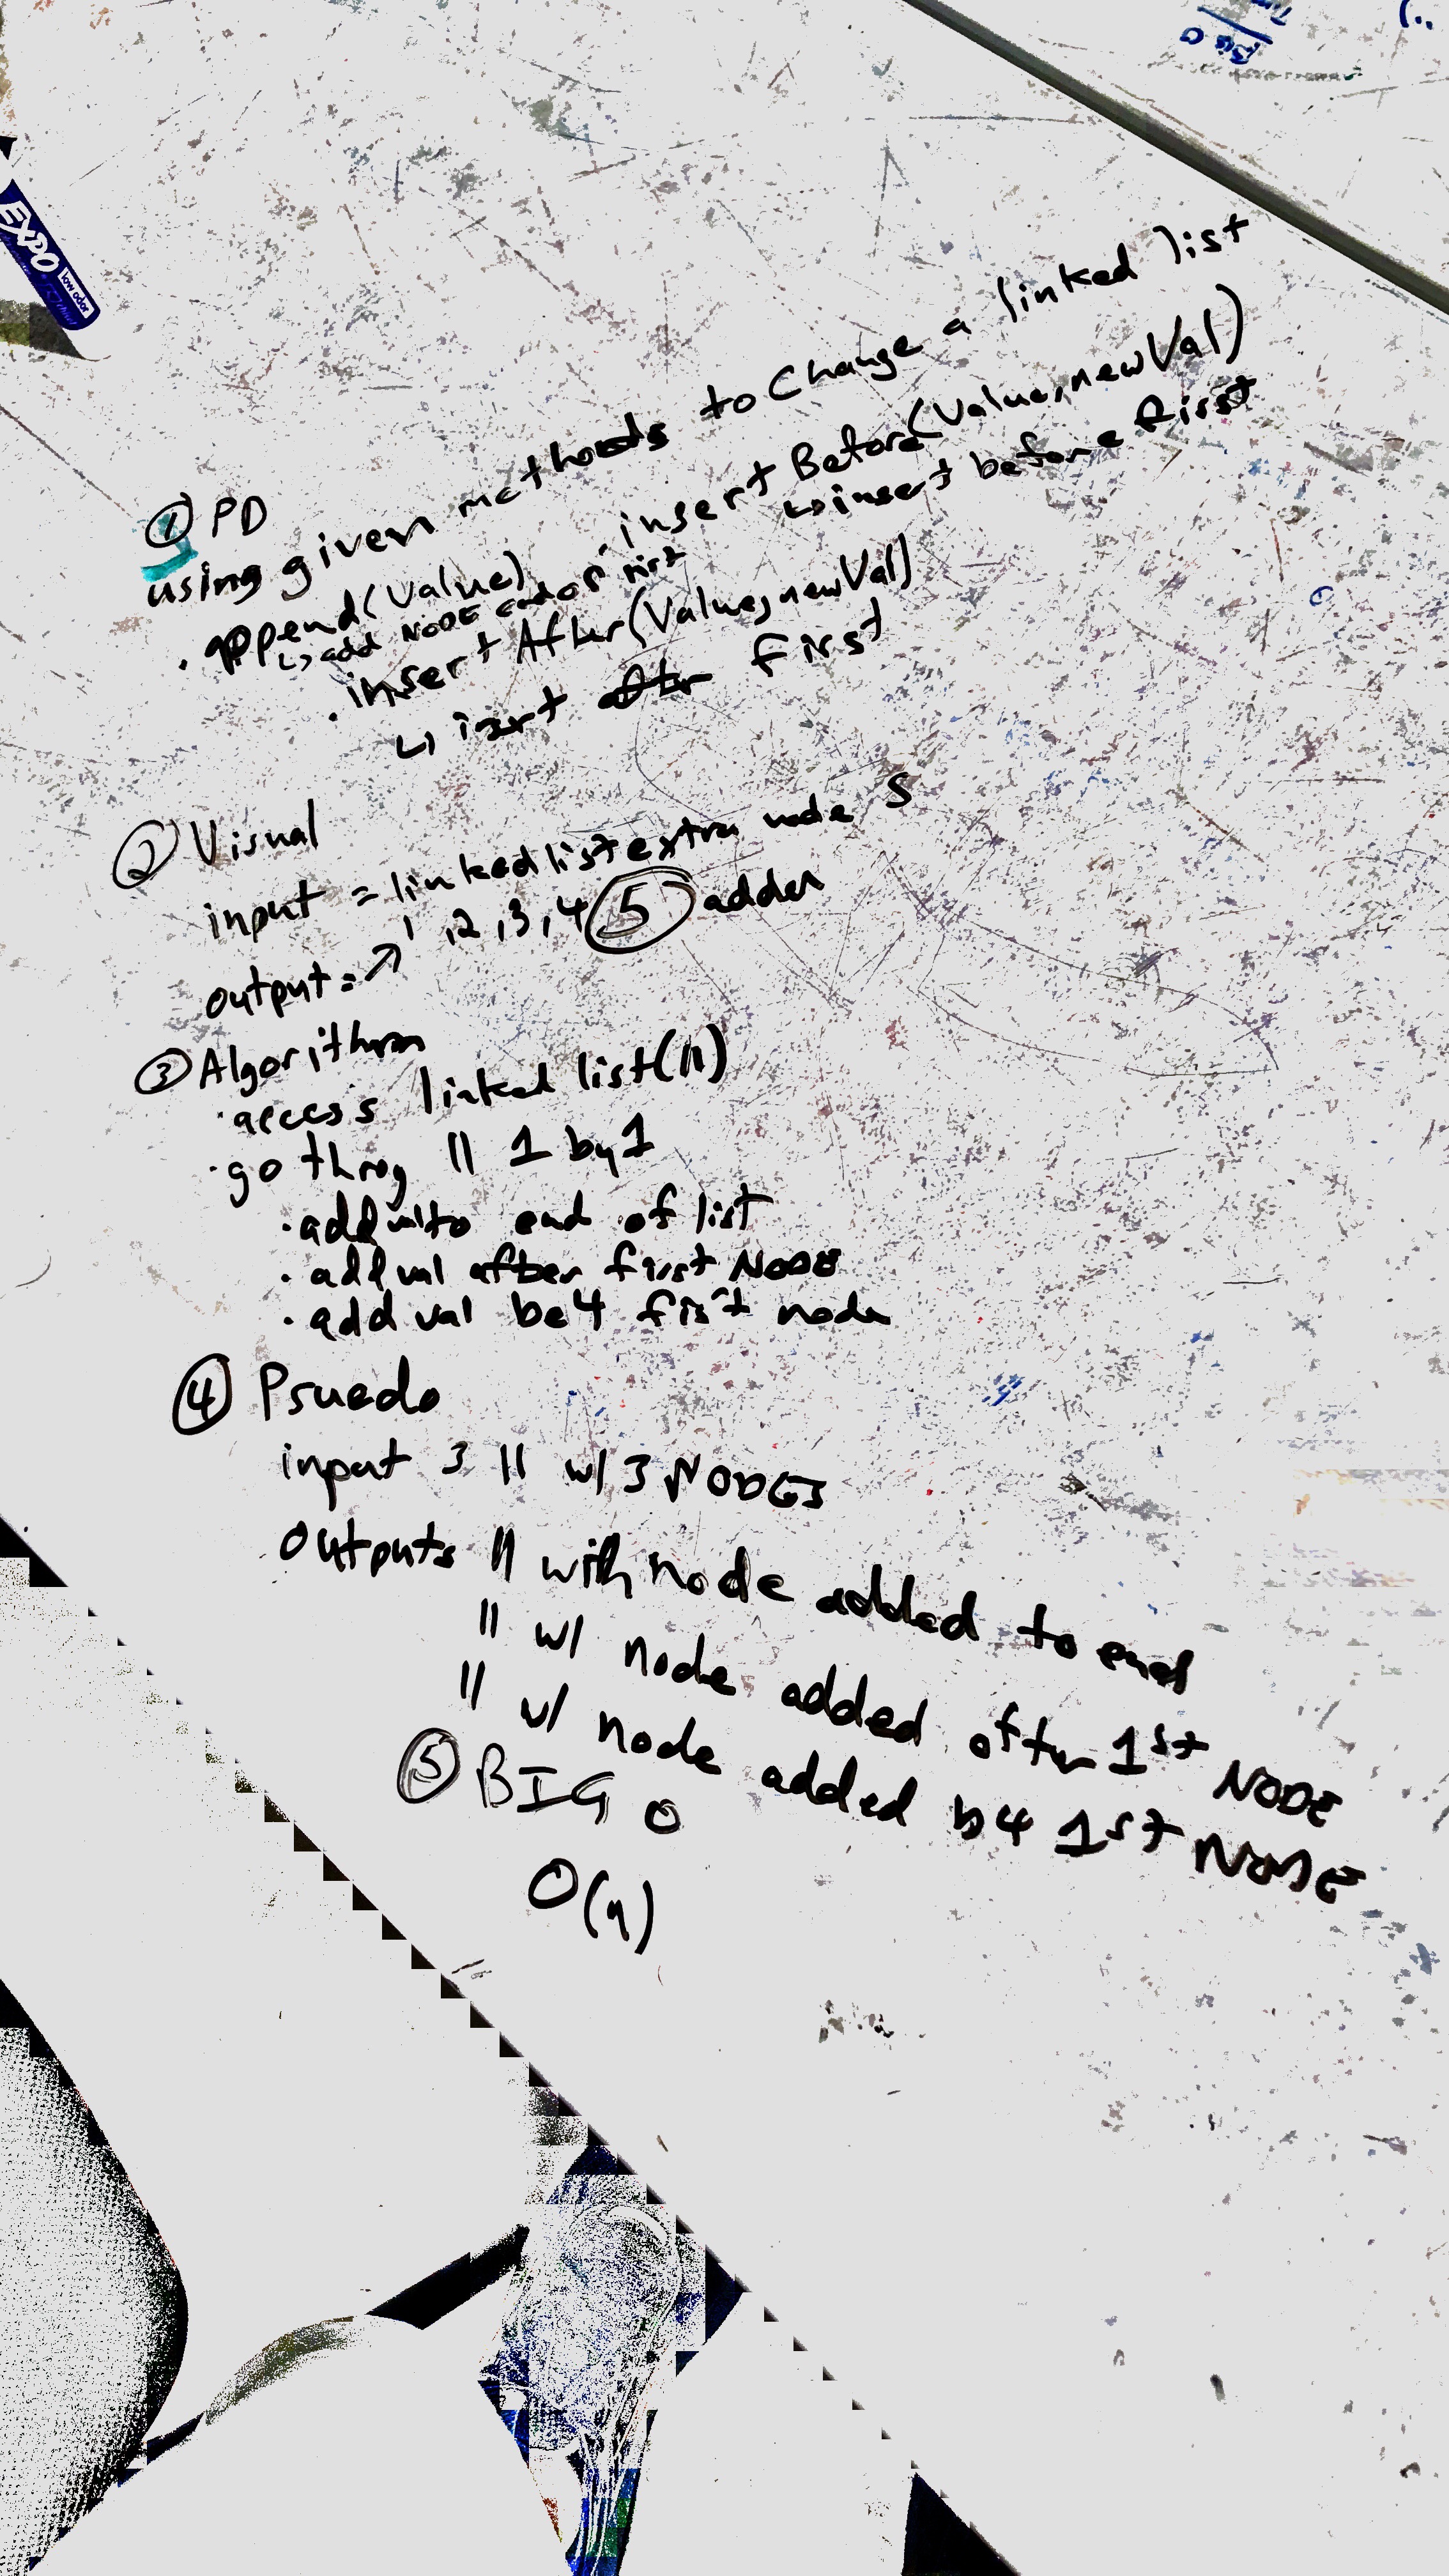 Big O
EXPO
low odor
① PD
using given methods to change a linked list
• append(value)
↳ add NODE end of list
• insert Before(value, newVal)
↳ insert before first
• insert After(value, newVal)
↳ insert after first
② Visual
input = linked list extra node 5
1, 2, 3, 4 5 added
output = ↗
③ Algorithm
• access linked list (ll)
• go throg ll 1 by 1
• add val to end of list
• add val after first NODE
• add val be4 first node
④ Psuedo
input 3 ll w/ 3 NODES
Outputs ll with node added to end
ll w/ node added after 1st NODE
ll w/ node added b4 1st NODE
⑤ BIG O
O(n)